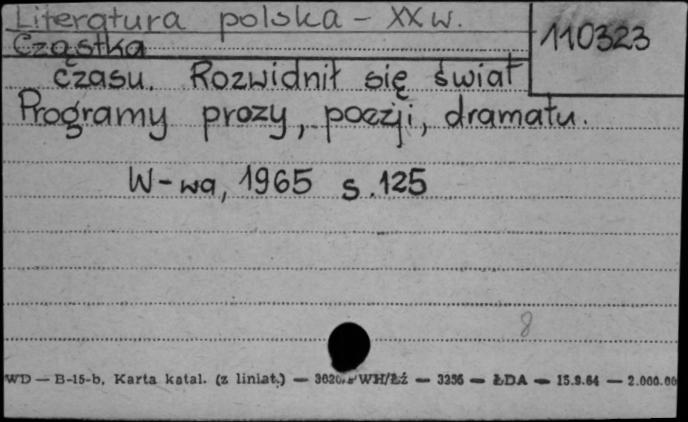 Literatura polska - XX w.
110323
Cząstka
czasu. Rozwidnił się świat
Programy prozy, poezji, dramatu.
W-wa, 1965 s.125
8
WD — B-15-b, Karta katal. (z liniat.) — WH/Łź — 3256 — ŁDA — 15.9.64 — 2.000.00